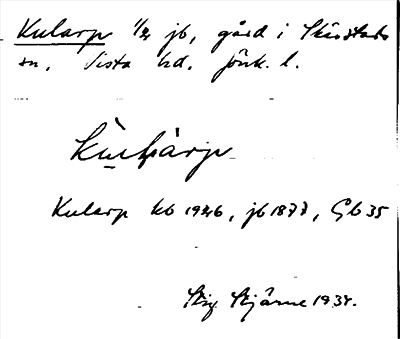 Kularp 1/2 jb, gård i Skärstads
sn, Vista hd. Jönk. l.
Kularp kb 1926, jb 1877, Gb 35
Stig Stjärne 1934.